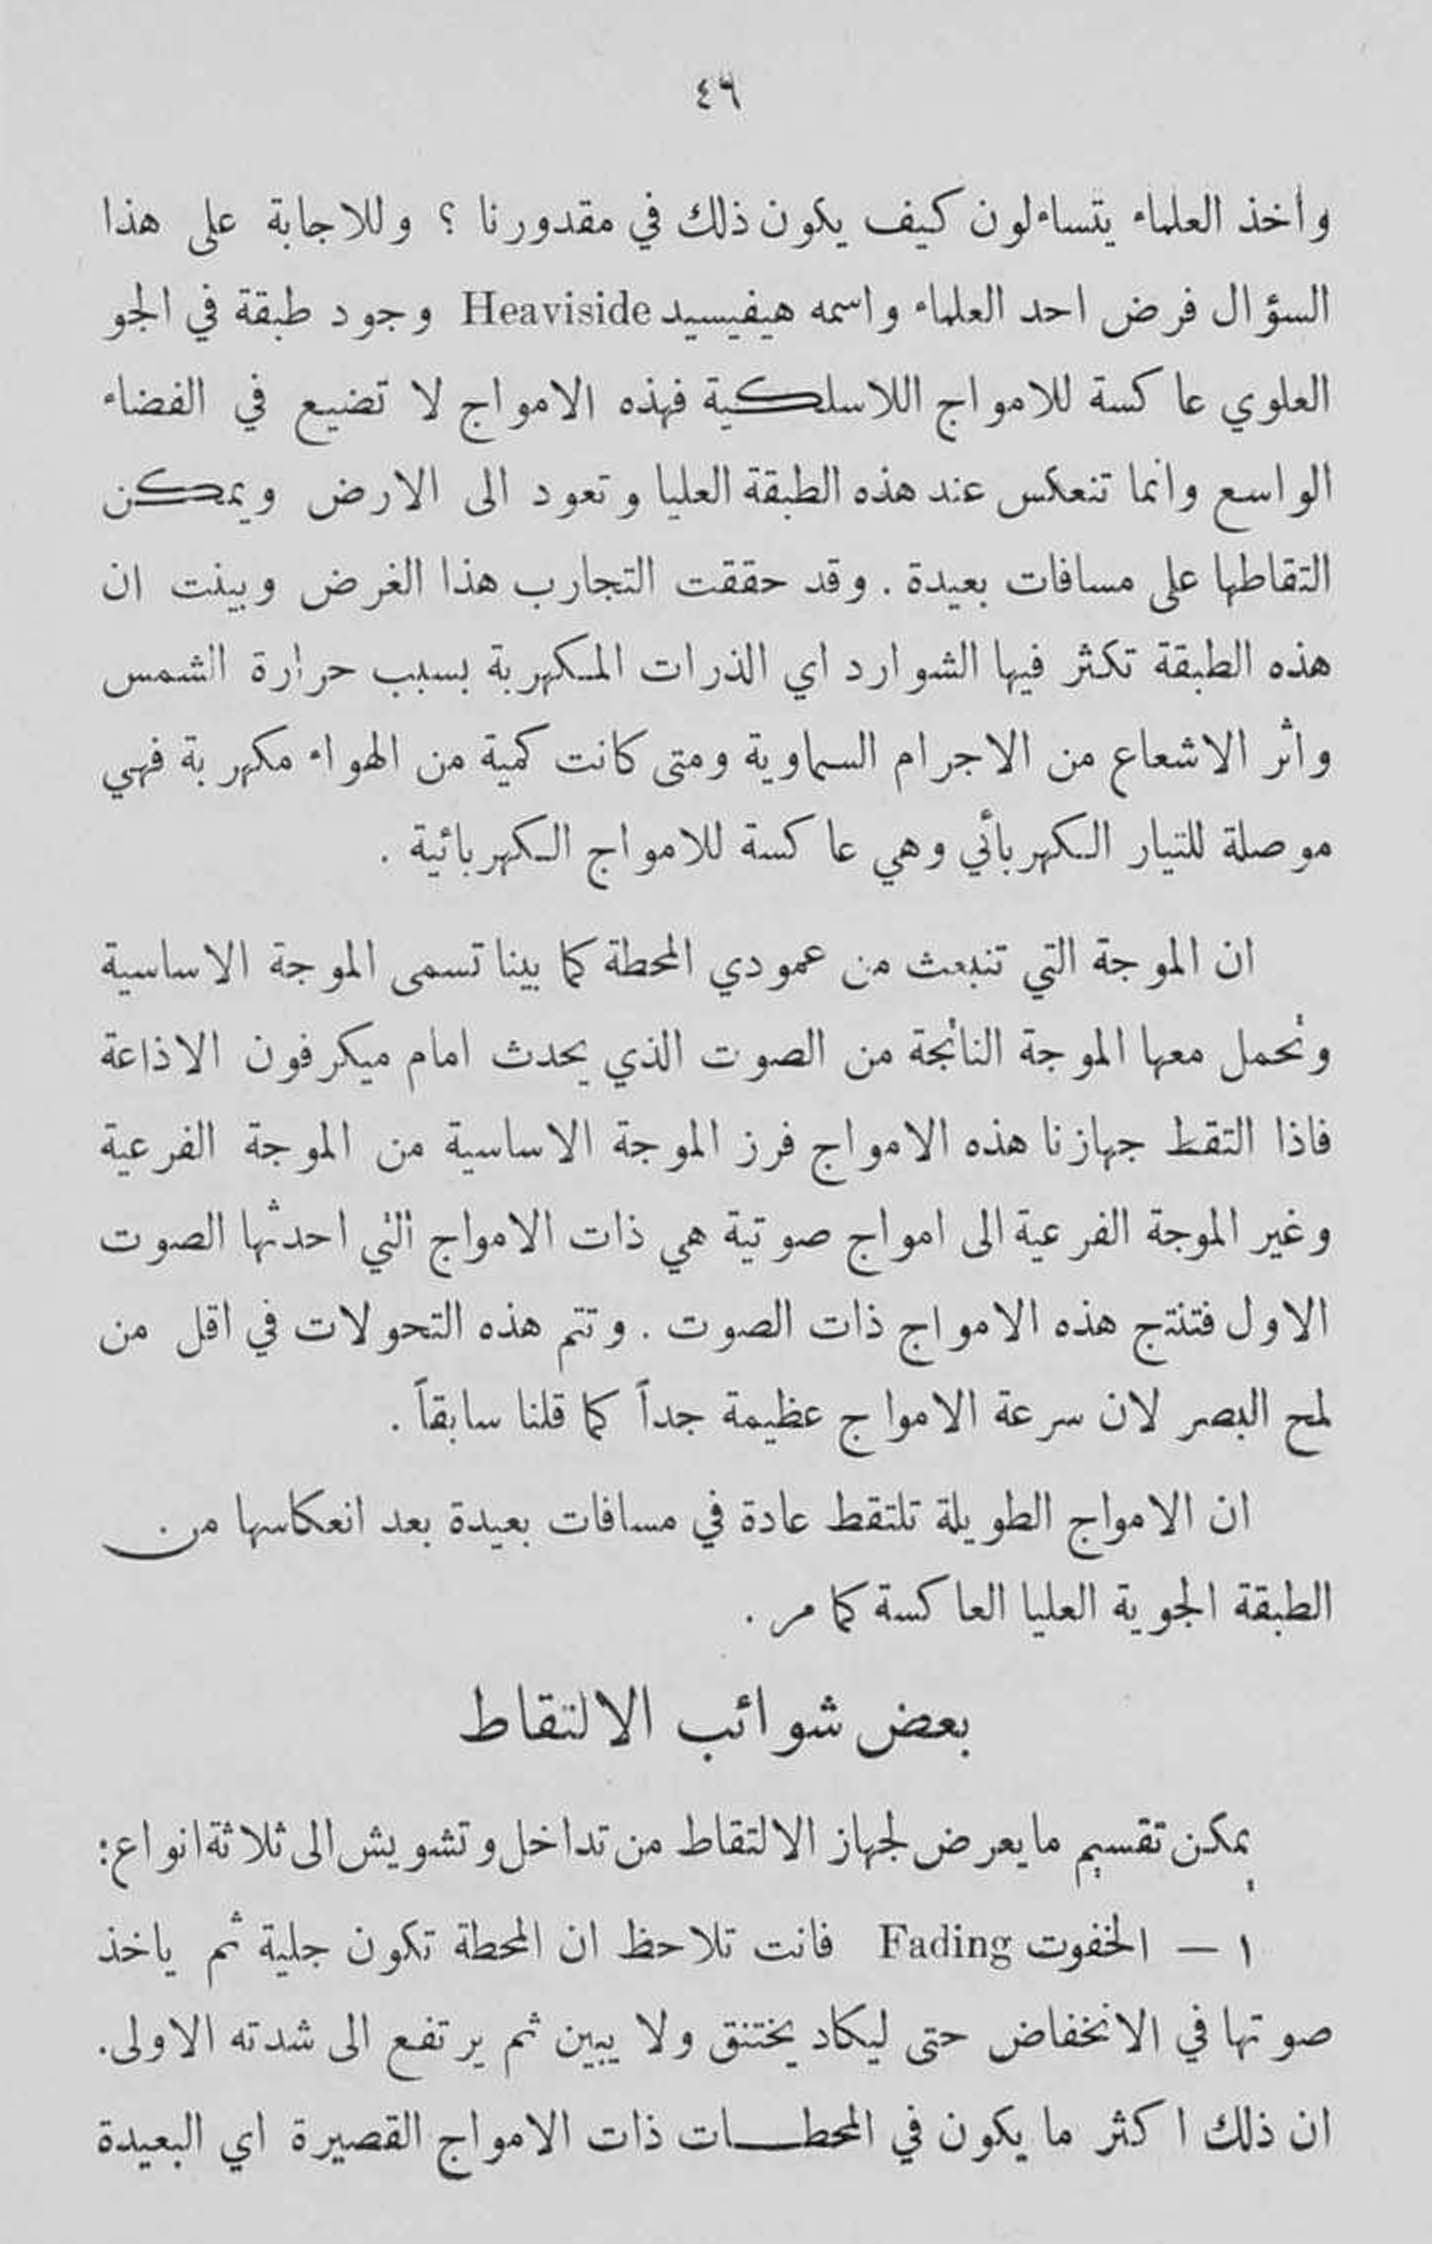 ٤٦
وأخذ العلماء يتساءلون كيف يكون ذلك في مقدورنا ؟ وللاجابة على هذا
السؤال فرض احد العلماء واسمه هيفيسيد Heaviside وجود طبقة في الجو
العلوي عاكسة للامواج اللاسلكية فهذه الامواج لا تضيع في الفضاء
الواسع وانما تنعكس عند هذه الطبقة العليا وتعود الى الارض ويمكن
التقاطها على مسافات بعيدة . وقد حققت التجارب هذا الغرض وبينت ان
هذه الطبقة تكثر فيها الشوارد اي الذرات المكهربة بسبب حرارة الشمس
واثر الاشعاع من الاجرام السماوية ومتى كانت كمية من الهواء مكهربة فهي
موصلة للتيار الكهربائي وهي عاكسة للامواج الكهربائية .
ان الموجة التي تنبعث من عمودي المحطة كما بينا تسمى الموجة الاساسية
وتحمل معها الموجة الناتجة من الصوت الذي يحدث امام ميكرفون الاذاعة
فاذا التقط جهازنا هذه الامواج فرز الموجة الاساسية من الموجة الفرعية
وغير الموجة الفرعية الى امواج صوتية هي ذات الامواج التي احدثها الصوت
الاول فتنتج هذه الامواج ذات الصوت . وتتم هذه التحولات في اقل من
لمح البصر لان سرعة الامواج عظيمة جداً كما قلنا سابقاً .
ان الامواج الطويلة تلتقط عادة في مسافات بعيدة بعد انعكاسها من
الطبقة الجوية العليا العاكسة كما مر .
بعض شوائب الالتقاط
يمكن تقسيم ما يعرض لجهاز الالتقاط من تداخل وتشويش الى ثلاثة انواع :
١ — الخفوت Fading فانت تلاحظ ان المحطة تكون جلية ثم ياخذ
صوتها في الانخفاض حتى ليكاد يختنق ولا يبين ثم يرتفع الى شدته الاولى .
ان ذلك اكثر ما يكون في المحطات ذات الامواج القصيرة اي البعيدة